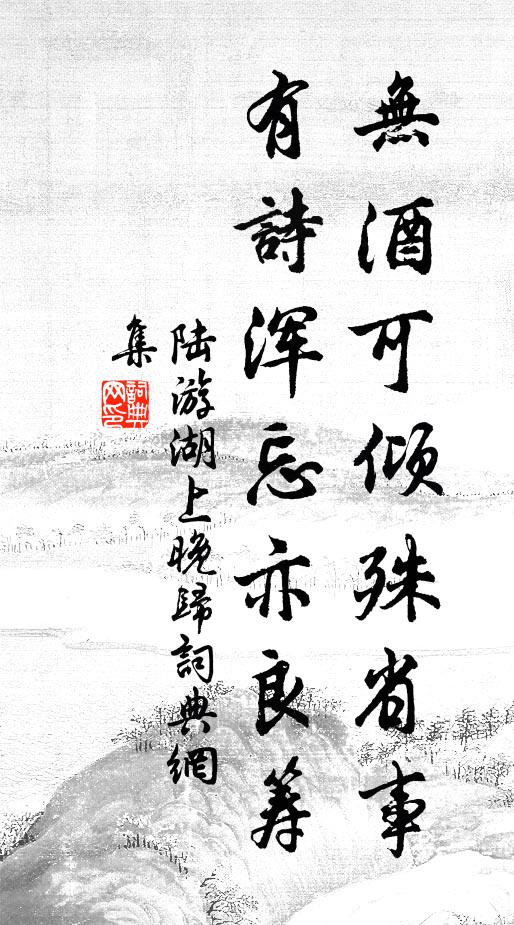 無酒可倾殊省事
有詩浑忘亦良筹
陆游湖上晚歸詞典網
集
詞典
网印